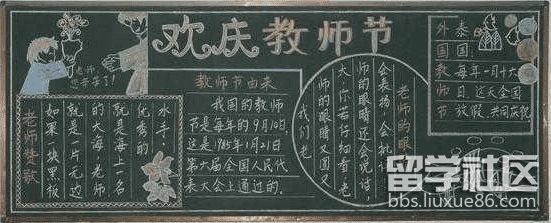 欢庆教师节
老师
您辛苦了!
老师赞歌
如果一块黑板
就是一片无边
的大海 老师
就是海上一名
优秀的
水手.
教师节由来
我国的教师
节是每年的9月10日,
这是1985年1月21日
第六届全国人民代
表大会上通过的.
老师的眼
我们老
师的眼睛又圆又
大,你若仔细看老
师的眼睛还会说话,
会表扬,会批
外国教师节
泰
国:
每年一月十六
日,这天全国
放假,共同庆祝
留学社区
bbs.liuxue86.com